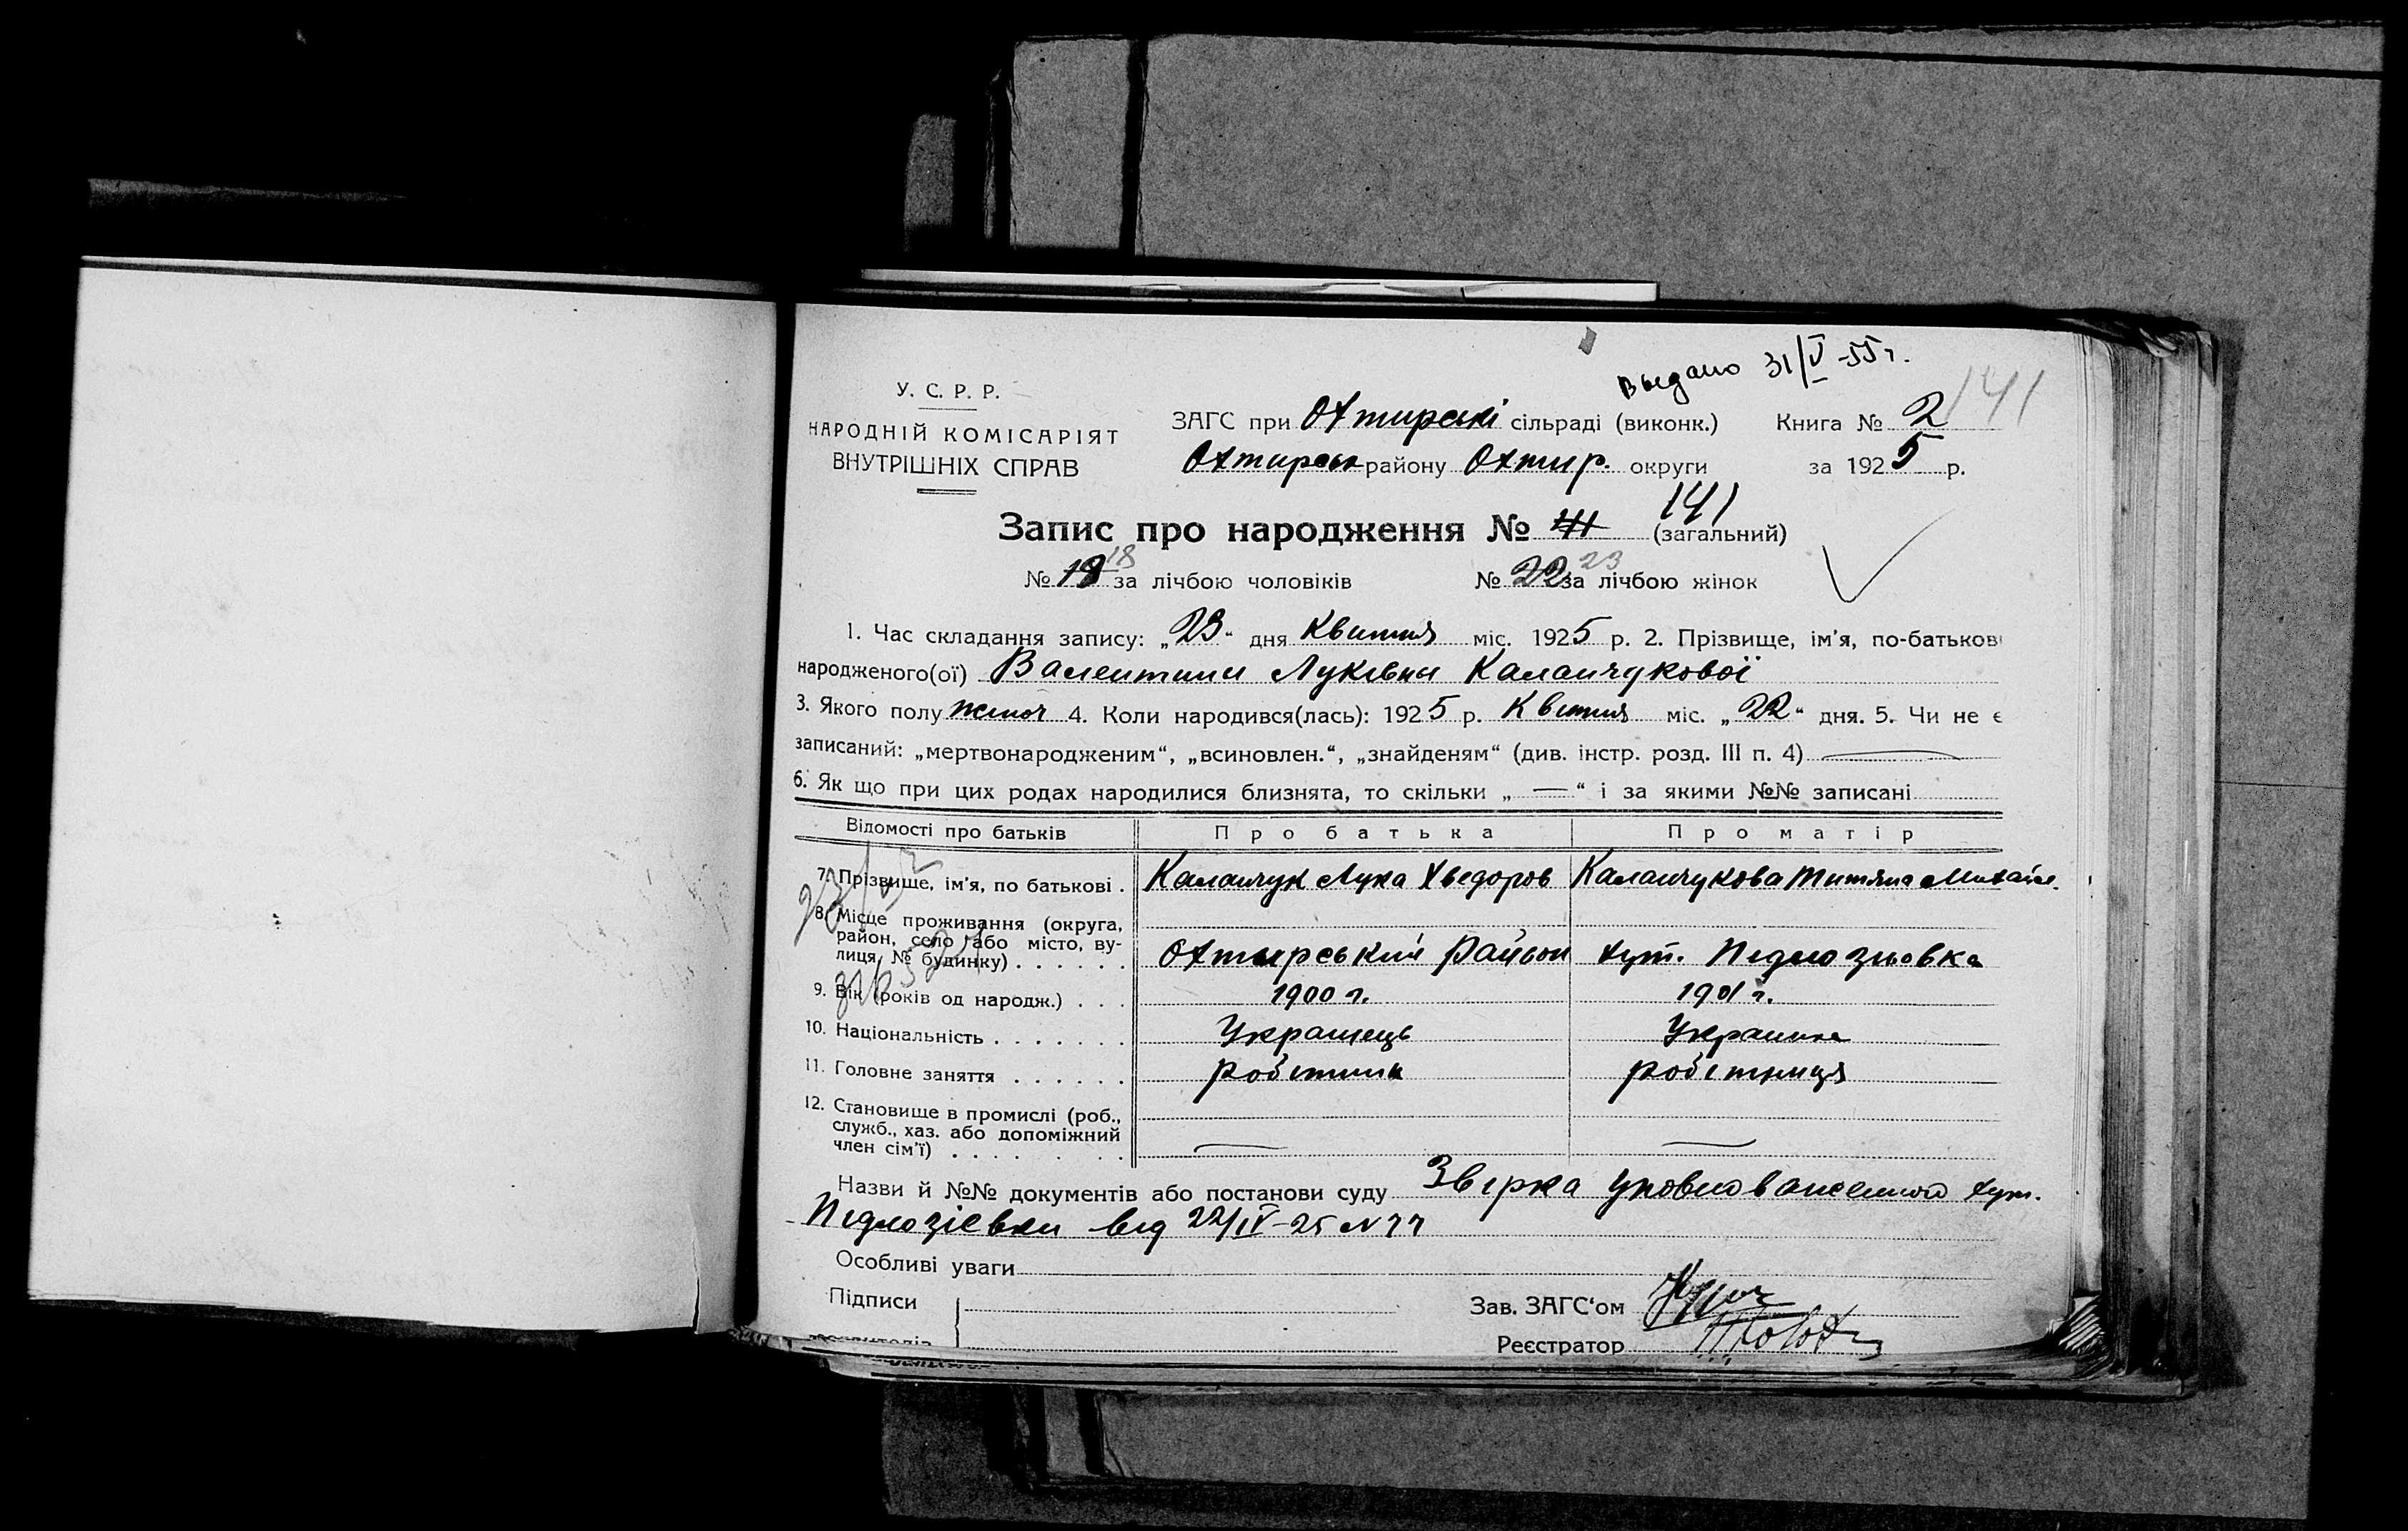 Выдано 31/V-55 г.
У. С. Р. Р.
НАРОДНІЙ КОМІСАРІЯТ
ВНУТРІШНІХ СПРАВ
ЗАГС при Охтирскі сільраді (виконк.) Книга № 2 141
Охтирськ району Охтир. округи за 1925 р.
Запис про народження № 141 (загальний)
№ 18 за лічбою чоловіків № 22 23 за лічбою жінок
1. Час складання запису: „23“ дня Квітня міс. 1925 р. 2. Прізвище, ім'я, по-батькові
народженого(ої) Валентини Луківни Каланчукової
3. Якого полу жіноч 4. Коли народився(лась): 1925 р. Квітня міс. „22“ дня. 5. Чи не є
записаний: „мертвонародженим“, „всиновлен.“, „знайденям“ (див. інстр. розд. III п. 4)
6. Як що при цих родах народилися близнята, то скільки „ — “ і за якими №№ записані
Відомості про батьків Про батька Про матір
7. Прізвище, ім'я, по батькові . Каланчук Лука Хведоров Каланчукова Титяна Михайл.
8. Місце проживання (округа,
район, село або місто, ву-
лиця, № будинку) . . . . . . Охтирський Район хут. Підлозіївка
9. Вік (років од народж.) . . . 1900 г. 1901 г.
10. Національність . . . . . . . Украінець Украінка
11. Головне заняття . . . . . . робітник робітниця
12. Становище в промислі (роб.,
служб., хаз. або допоміжний
член сім'ї) . . . . . . . —— ——
Назви й №№ документів або постанови суду Звірка уповноваженного хут.
Підлозієвки від 22/IV-25 N 77
Особливі уваги
Підписи
Зав. ЗАГС'ом
Реєстратор